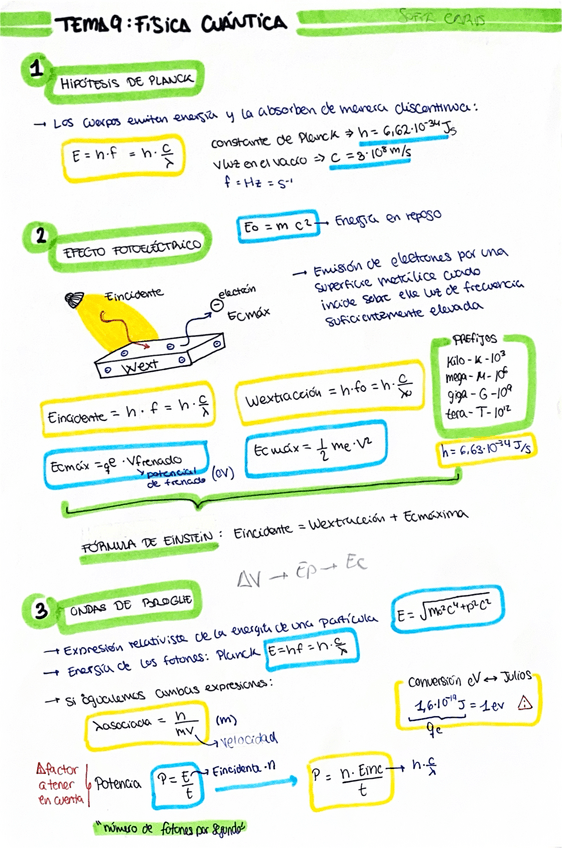 TEMA 9: FÍSICA CUÁNTICA
1 HIPÓTESIS DE PLANCK
→ Los cuerpos emiten energía y la absorben de manera discontinua:
E = h·f = h·c/λ
constante de Planck ⇒ h = 6,62·10⁻³⁴ Js
v luz en el vacío ⇒ c = 3·10⁸ m/s
f = Hz = s⁻¹
E₀ = m c² → Energía en reposo
2 EFECTO FOTOELÉCTRICO
→ Emisión de electrones por una
superficie metálica cuando
incide sobre ella luz de frecuencia
suficientemente elevada
Eincidente
electrón
Ecmáx
Wext
PREFIJOS
Kilo - K - 10³
mega - M - 10⁶
giga - G - 10⁹
tera - T - 10¹²
Eincidente = h · f = h · c/λ
Wextracción = h·f₀ = h · c/λ₀
h = 6,63·10⁻³⁴ J/s
Ecmáx = qe · Vfrenado
potencial de frenado (0V)
Ecmáx = 1/2 me · v²
FÓRMULA DE EINSTEIN: Eincidente = Wextracción + Ecmáxima
ΔV → Ep → Ec
3 ONDAS DE BROGLIE
→ Expresión relativista de la energía de una partícula E = √m₀²c⁴+p²c²
→ Energía de los fotones: Planck E=hf = h·c/λ
→ Si igualamos ambas expresiones:
λasociada = h/mv (m)
velocidad
Conversión eV ↔ Julios
1,6·10⁻¹⁹ J = 1 eV
qe
Δfactor
a tener
en cuenta
Potencia P = E/t → Eincidente · n
P = n · Einc/t → h·c/λ
"número de fotones por segundo"